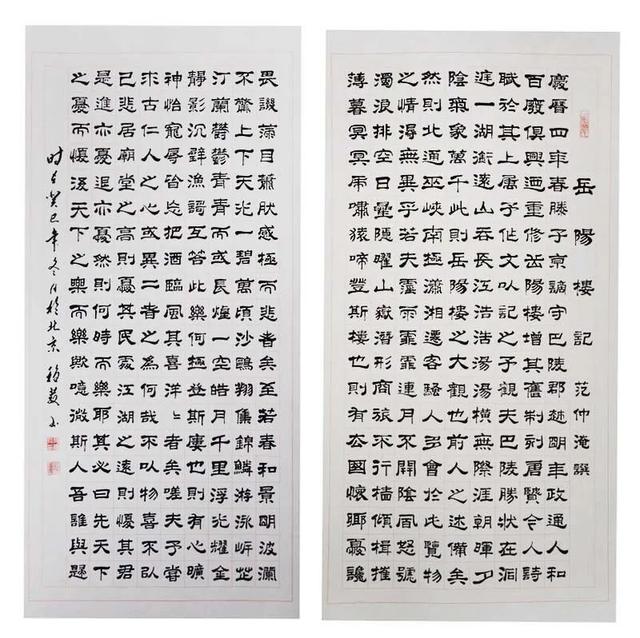 岳陽樓記 范仲淹撰
慶曆四年春滕子京謫守巴陵郡越明年政通人和
百廢俱興迺重修岳陽樓增其舊制刻唐賢今人詩
賦於其上屬予作文以記之予觀夫巴陵勝狀在洞
庭一湖銜遠山吞長江浩浩湯湯橫無際涯朝暉夕
陰氣象萬千此則岳陽樓之大觀也前人之述備矣
然則北通巫峽南極瀟湘遷客騷人多會於此覽物
之情得無異乎若夫霪雨霏霏連月不開陰風怒號
濁浪排空日星隱曜山嶽潛形商旅不行檣傾楫摧
薄暮冥冥虎嘯猿啼登斯樓也則有去國懷鄉憂讒
畏譏滿目蕭然感極而悲者矣至若春和景明波瀾
不驚上下天光一碧萬頃沙鷗翔集錦鱗游泳岸芷
汀蘭鬱鬱青青而或長煙一空皓月千里浮光耀金
靜影沉璧漁謌互答此樂何極登斯樓也則有心曠
神怡寵辱皆忘把酒臨風其喜洋洋者矣嗟夫予嘗
求古仁人之心或異二者之為何哉不以物喜不以
己悲居廟堂之高則憂其民處江湖之遠則憂其君
是進亦憂退亦憂然則何時而樂耶其必曰先天下
之憂而憂後天下之樂而樂歟噫微斯人吾誰與歸
时在癸巳年冬月於北京